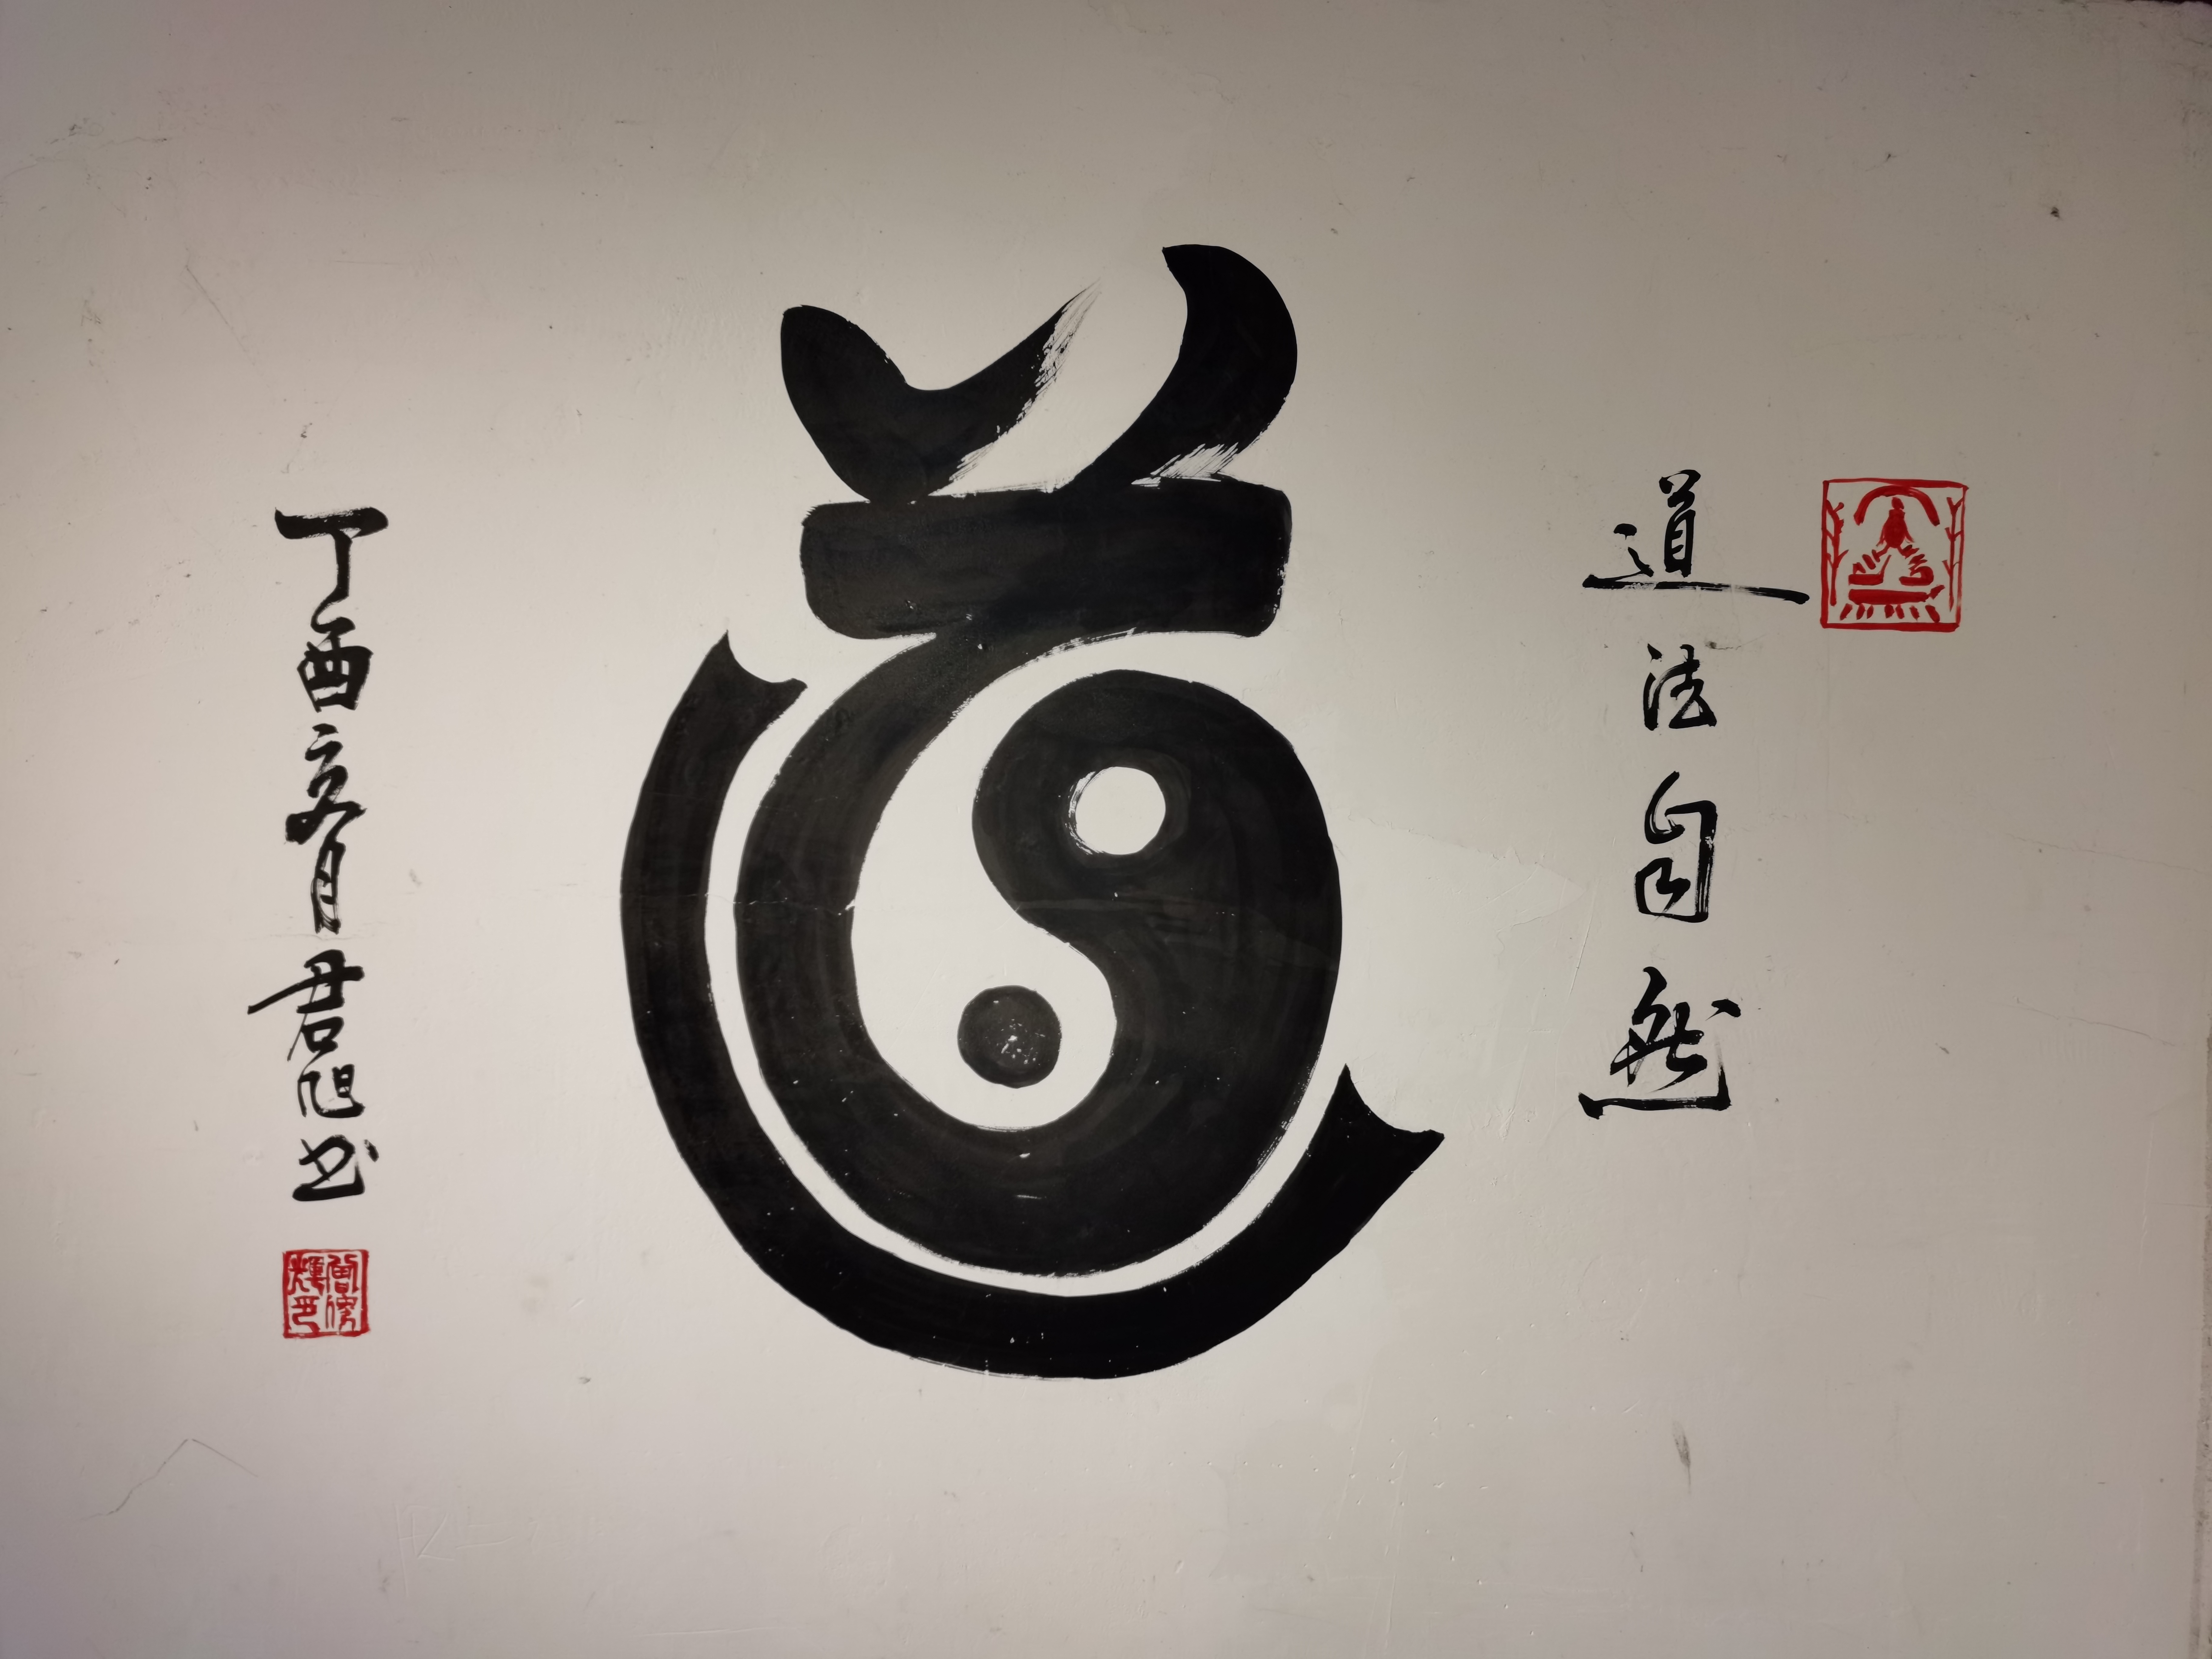 道法自然
道
丁酉亥月君旭书